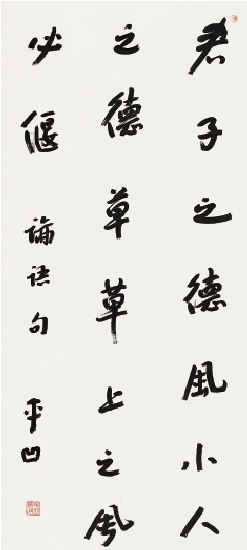 君子之德風小人
之德草草上之風
必偃論語句平凹